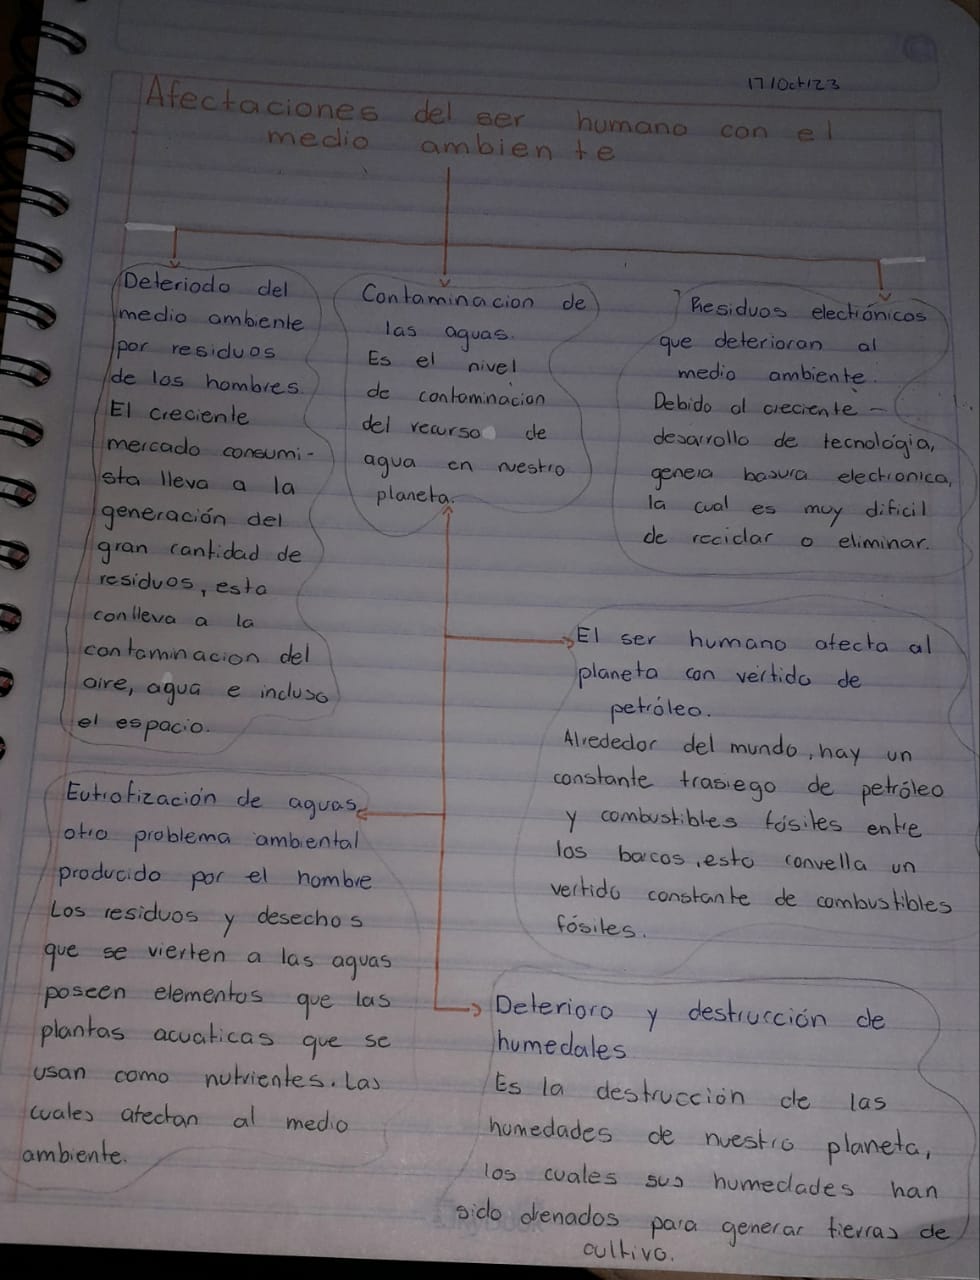 17/Oct/23
Afectaciones del ser humano con el
medio ambiente
Deteriodo del
medio ambiente
por residuos
de los hombres.
El creciente
mercado consumi-
sta lleva a la
generación del
gran cantidad de
residuos, esto
conlleva a la
contaminacion del
aire, agua e incluso
el espacio.
Contaminacion de
las aguas.
Es el nivel
de contaminacion
del recurso de
agua en nuestro
planeta.
Residuos electrónicos
que deterioran al
medio ambiente.
Debido al creciente -
desarrollo de tecnologia,
genera basura electronica,
la cual es muy dificil
de reciclar o eliminar.
El ser humano afecta al
planeta con vertido de
petróleo.
Alrededor del mundo, hay un
constante trasiego de petróleo
y combustibles fósiles entre
los barcos, esto convella un
vertido constante de combustibles
fósiles.
Eutrofización de aguas,
otro problema ambiental
producido por el hombre
Los residuos y desechos
que se vierten a las aguas
poseen elementos que las
plantas acuaticas que se
usan como nutrientes. Las
cuales afectan al medio
ambiente.
Deterioro y destrucción de
humedales
Es la destrucción de las
humedades de nuestro planeta,
los cuales sus humedades han
sido drenados para generar tierras de
cultivo.